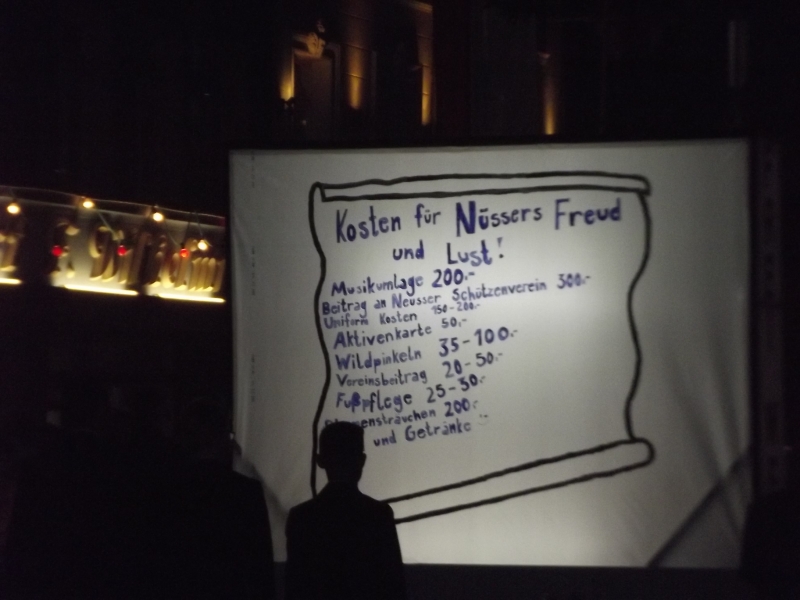 Kosten für Nüssers Freud
und Lust!
Musikumlage 200.-
Beitrag an Neusser Schützenverein 300.-
Uniform Kosten 150-200.-
Aktivenkarte 50.-
Wildpinkeln 35-100.-
Vereinsbeitrag 20-50.-
Fußpflege 25-30.-
200.-
und Getränke